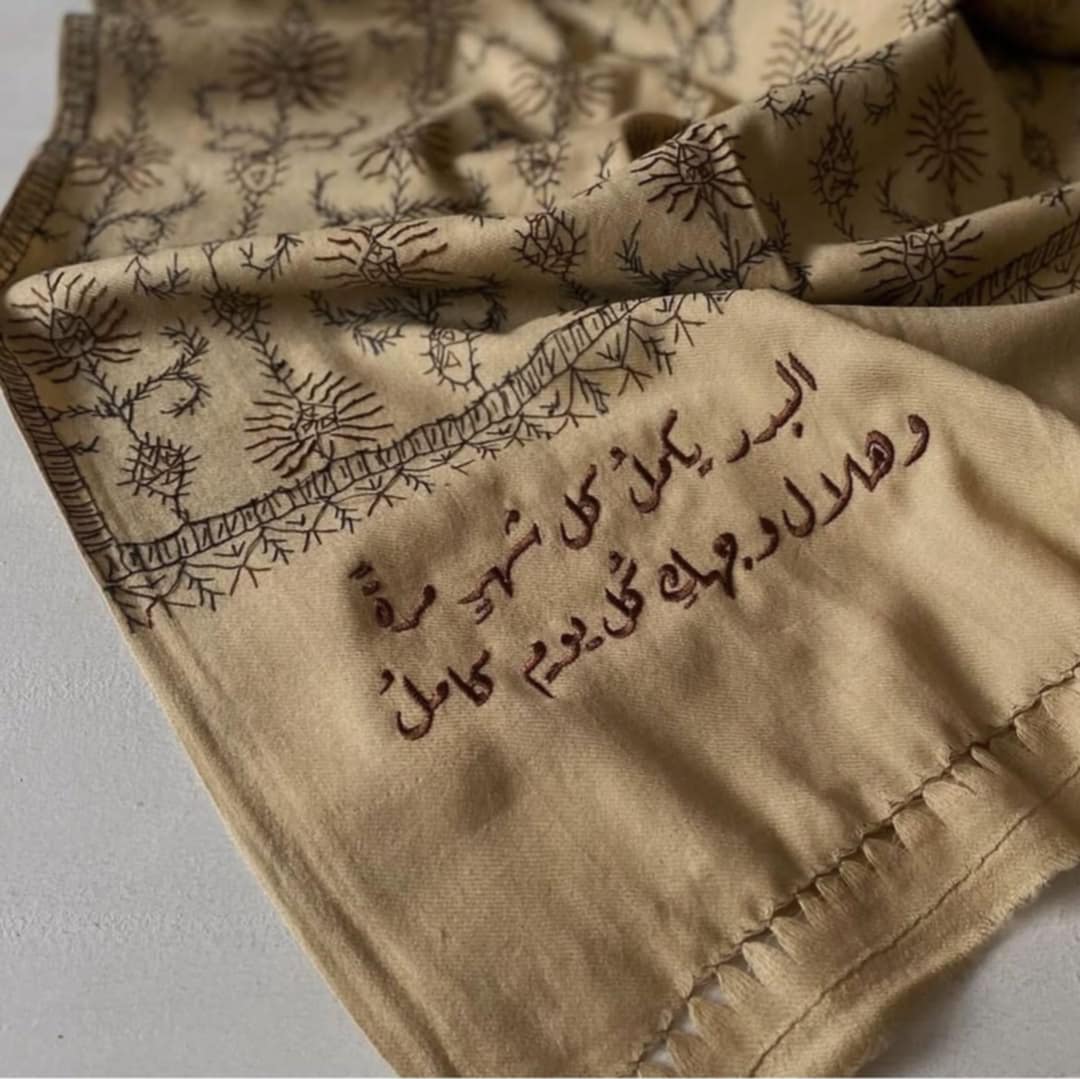 البدر يكملُ كل شهرٍ مرةً
وهلال وجهكِ كُل يوم كاملُ